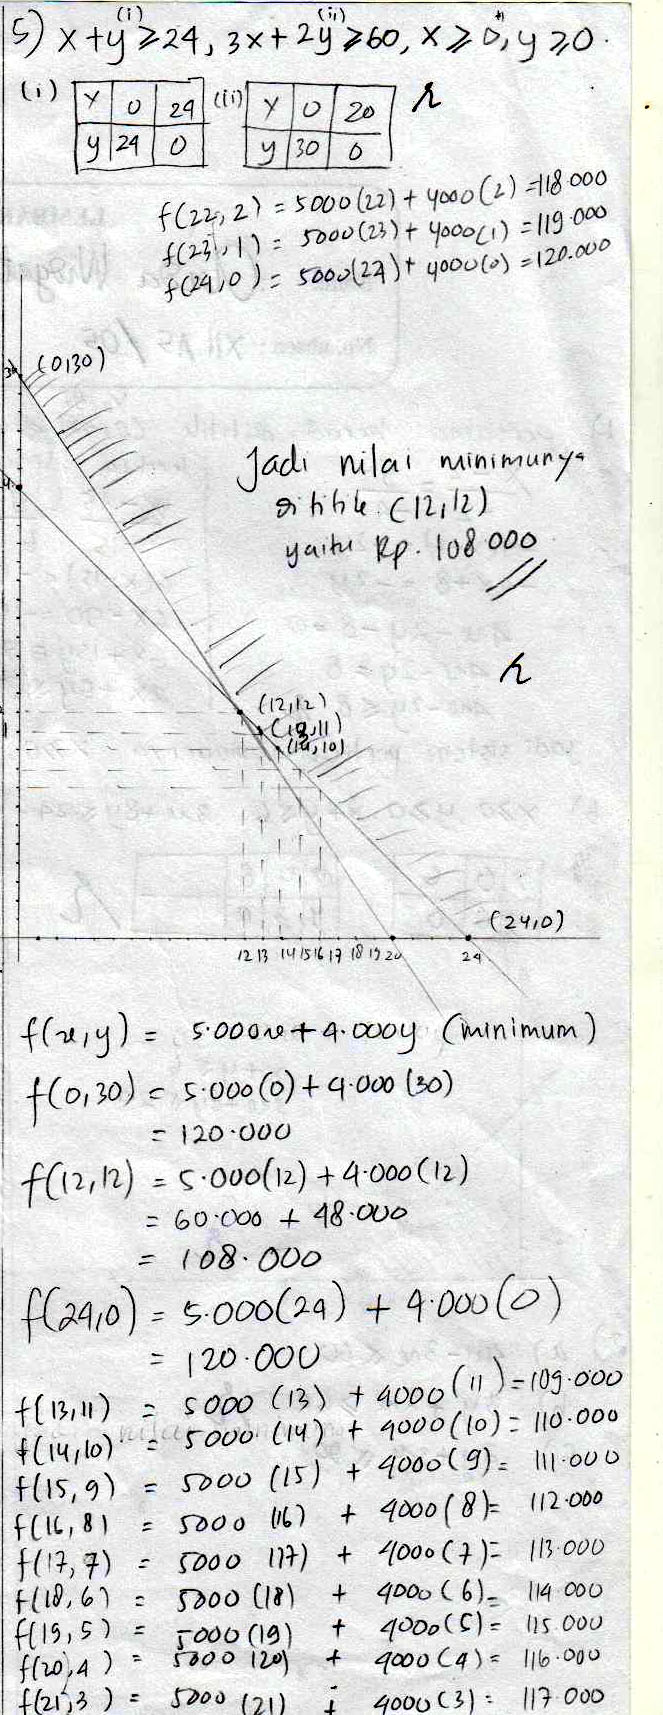 5) x+y ≥ 24, 3x+2y ≥ 60, x ≥ 0, y ≥ 0.
(i) (ii)
(i) x 0 24 (ii) x 0 20
y 24 0 y 30 0
f(22,2) = 5000(22) + 4000(2) = 118.000
f(23,1) = 5000(23) + 4000(1) = 119.000
f(24,0) = 5000(24) + 4000(0) = 120.000
(0,30)
Jadi nilai minimunya
di titik (12,12)
yaitu Rp. 108.000
(12,12)
(13,11)
(14,10)
(24,0)
12 13 14 15 16 17 18 19 20 24
f(x,y) = 5.000x + 4.000y (minimum)
f(0,30) = 5.000(0) + 4.000(30)
= 120.000
f(12,12) = 5.000(12) + 4.000(12)
= 60.000 + 48.000
= 108.000
f(24,0) = 5.000(24) + 4.000(0)
= 120.000
f(13,11) = 5000 (13) + 4000 (11) = 109.000
f(14,10) = 5000 (14) + 4000(10) = 110.000
f(15,9) = 5000 (15) + 4000(9) = 111.000
f(16,8) = 5000 (16) + 4000(8) = 112.000
f(17,7) = 5000 (17) + 4000(7) = 113.000
f(18,6) = 5000 (18) + 4000(6) = 114.000
f(19,5) = 5000 (19) + 4000(5) = 115.000
f(20,4) = 5000 (20) + 4000(4) = 116.000
f(21,3) = 5000 (21) + 4000(3) = 117.000